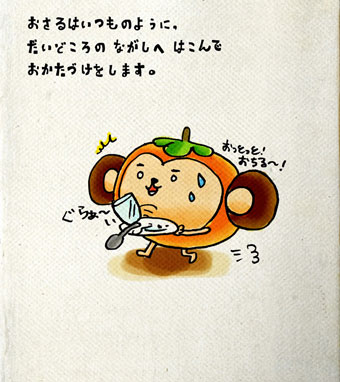 おさるはいつものように、
だいどころの ながしへ はこんで
おかたづけをします。
おっとっと!
おちる〜!
ぐらぁ〜
い